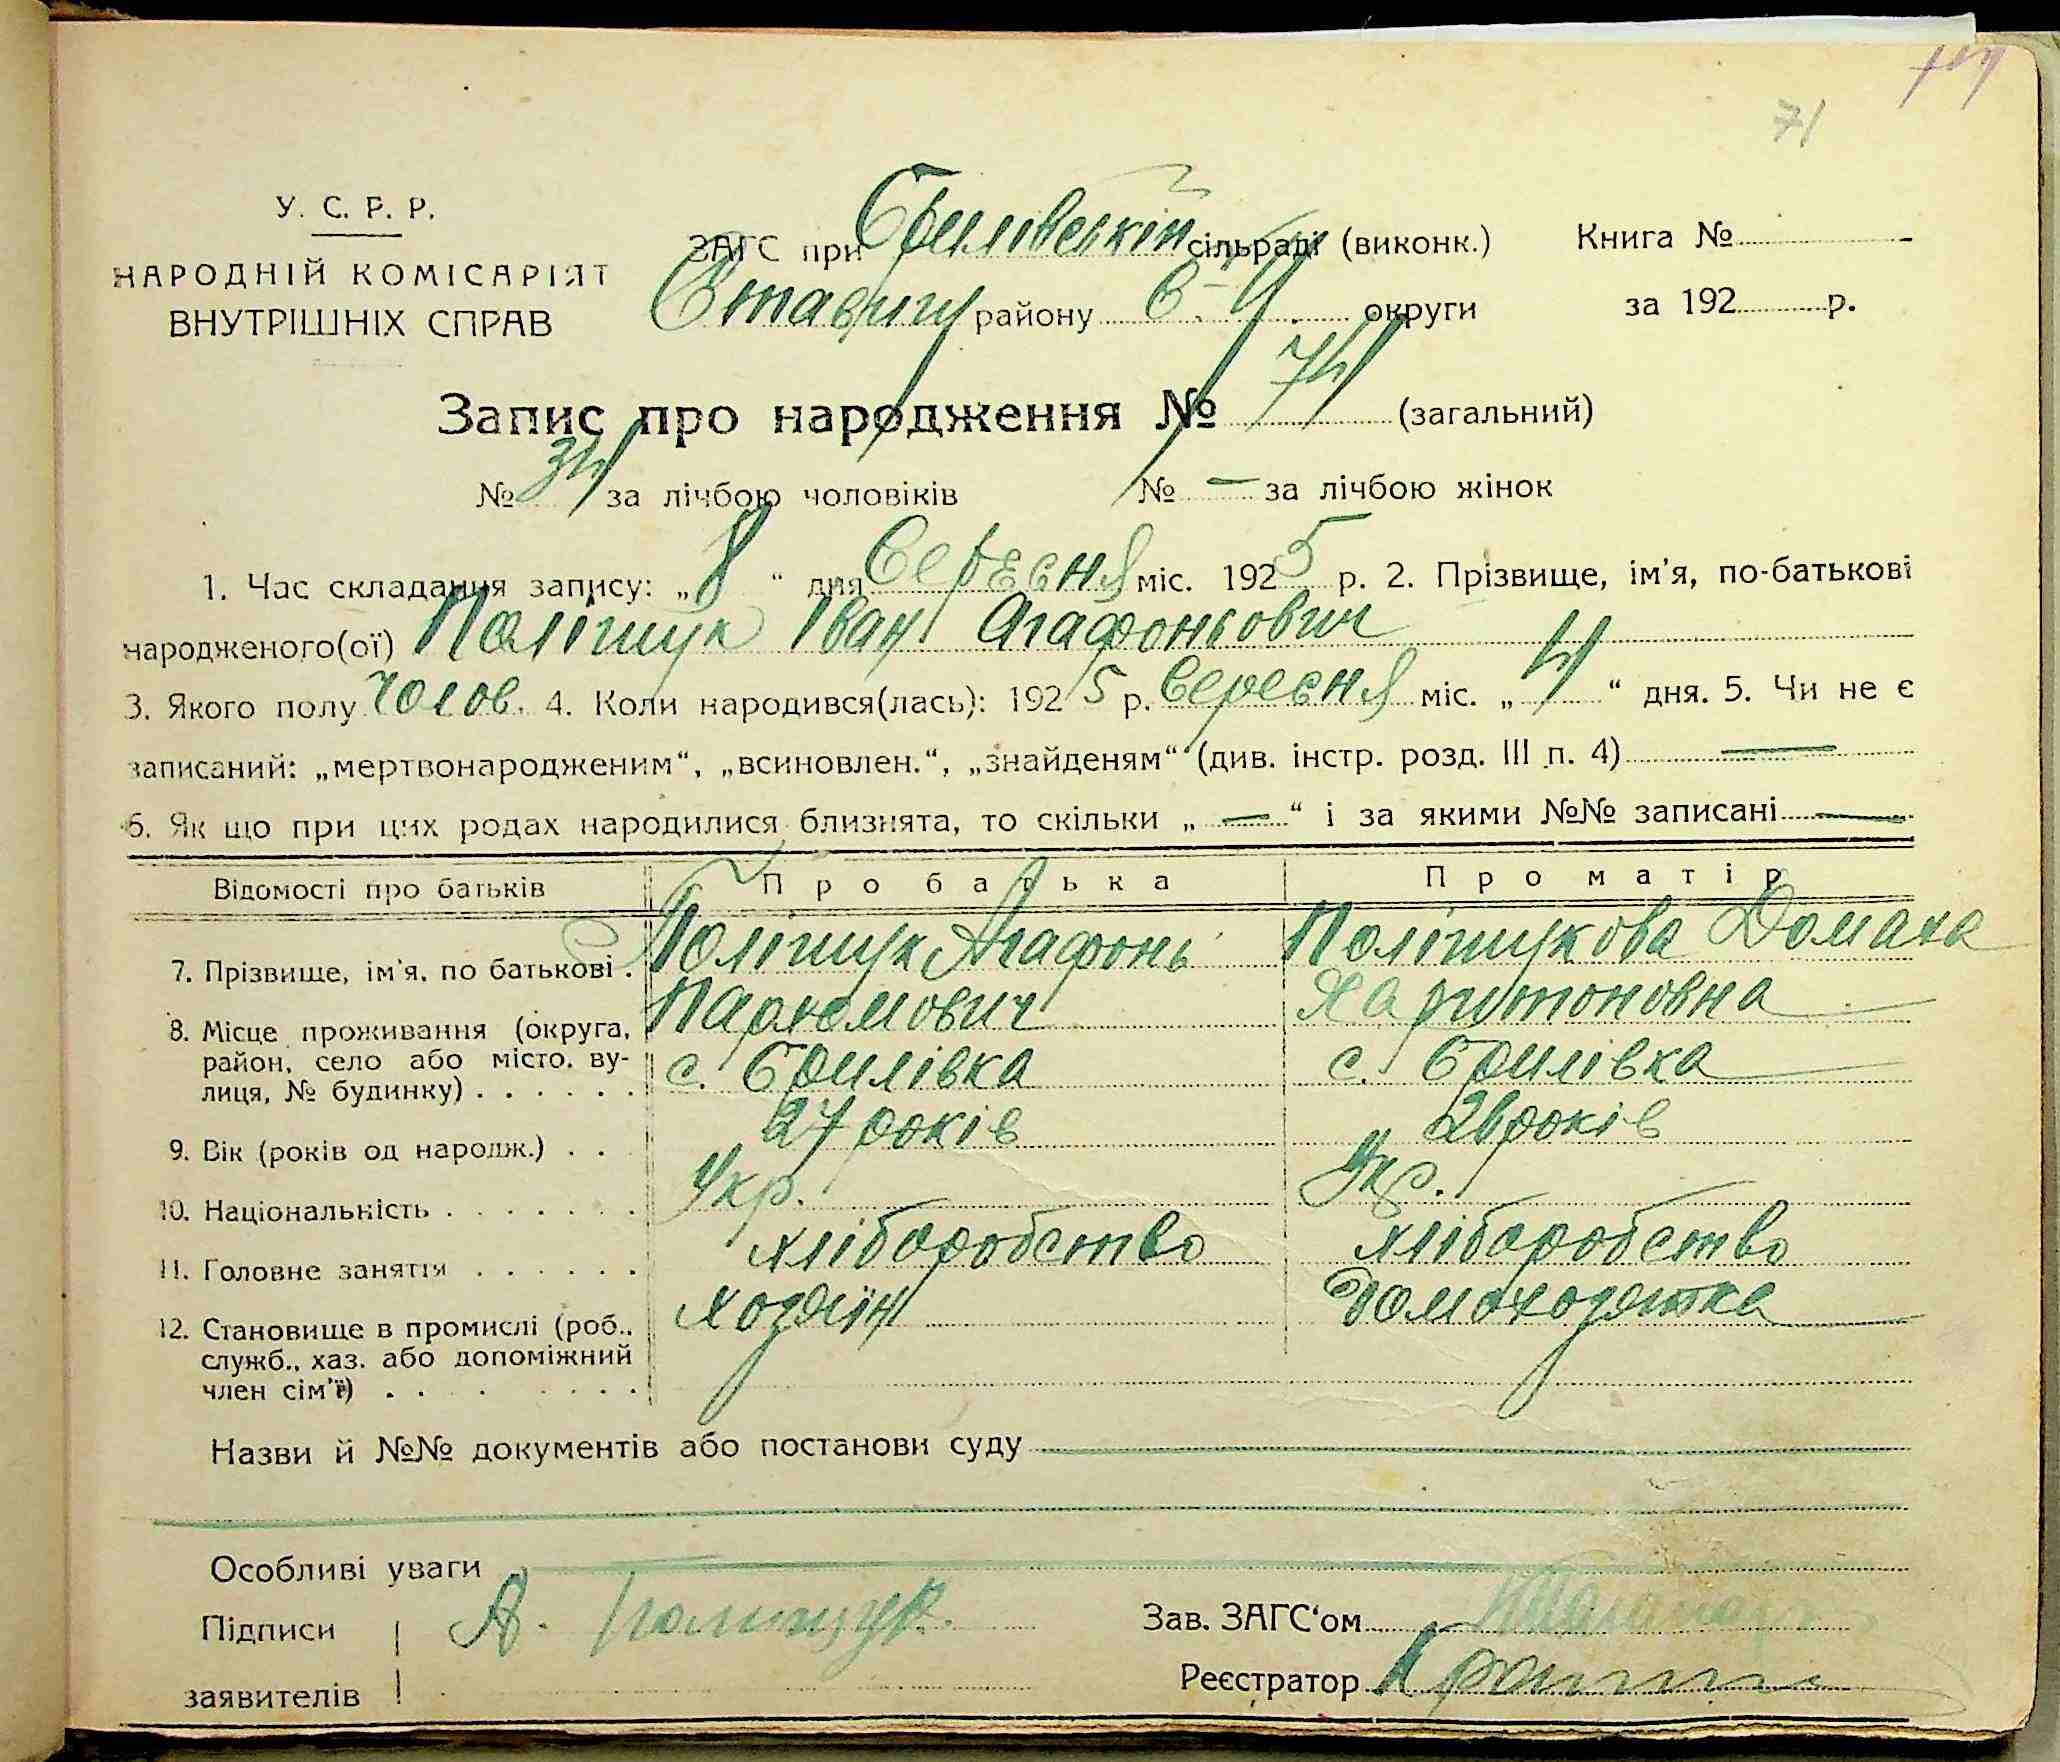 71
У. С. Р. Р.
НАРОДНІЙ КОМІСАРІЯТ
ВНУТРІШНІХ СПРАВ
ЗАГС при Брилівській сільраді (виконк.) Книга №
Ставищ району Б-Ц округи за 192 р.
Запис про народження № 74 (загальний)
№ 34 за лічбою чоловіків № — за лічбою жінок
1. Час складання запису: „8“ дня Сересня міс. 1925 р. 2. Прізвище, ім'я, по-батькові
народженого(ої) Поліщук Іван Агафоньович
3. Якого полу Чолов. 4. Коли народився(лась): 1925 р. Сересня міс. „4“ дня. 5. Чи не є
записаний: „мертвонародженим“, „всиновлен.“, „знайденям“ (див. інстр. розд. III п. 4) —
6. Як що при цих родах народилися близнята, то скільки „—“ і за якими №№ записані —
Відомості про батьків Про батька Про матір
7. Прізвище, ім'я, по батькові . Поліщук Агафонь Поліщукова Домаха
Пархомович Харитоновна
8. Місце проживання (округа, район, село або місто, вулиця, № будинку) . . . . . . с. Брилівка с. Брилівка
9. Вік (років од народж.) . . 27 років 26 років
10. Національність . . . . . . . Укр. Укр.
11. Головне заняття . . . . . . хліборобство хліборобство
12. Становище в промислі (роб., служб., хаз. або допоміжний член сім'ї) . . . . . . . хозяїн домохозяйка
Назви й №№ документів або постанови суду
Особливі уваги
Підписи А. Полищук. Зав. ЗАГС'ом
заявителів Реєстратор